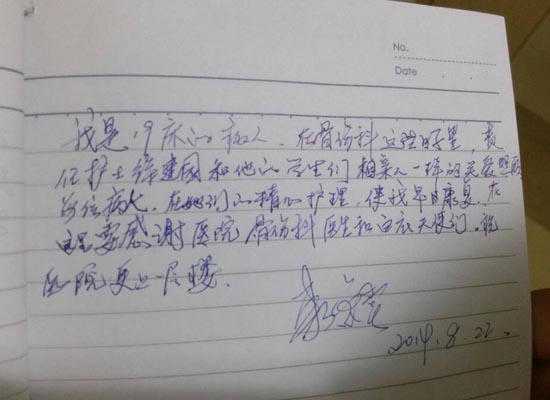 No.
Date
我是19床的病人。在骨伤科这些日里,责
任护士 建国和他的学生们相亲人一样的关爱照顾
每位病人。在她们的精心护理,使我早日康复。在
这里要感谢医院骨伤科医生和白衣天使们。祝
医院更上一层楼。
2014.8.22.